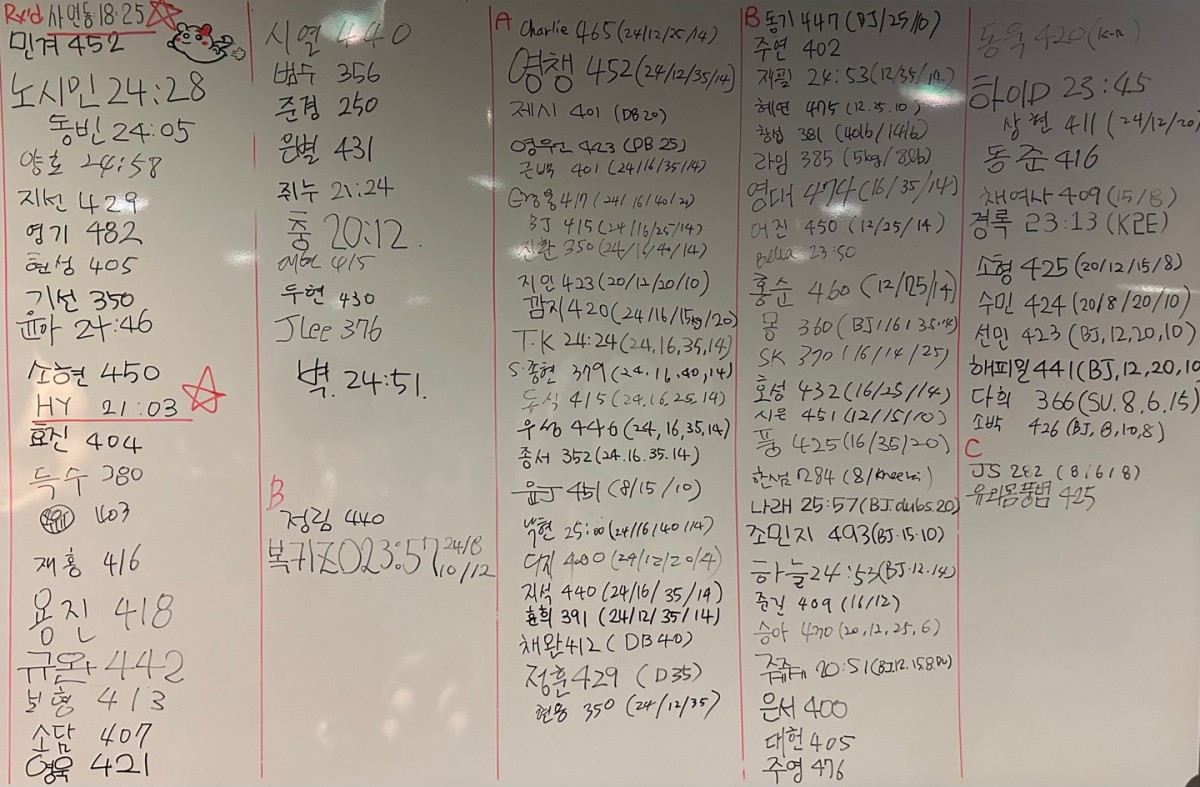 Rx'd 사연동 18:25
민겨 452
노시민 24:28
동빈 24:05
양호 24:58
지선 429
영기 482
현성 405
기선 350
윤아 24:46
소현 450
HY 21:03
효진 404
득수 380
403
재홍 416
용진 418
규완 442
보형 413
소담 407
영욱 421
시열 440
범수 356
준경 250
은별 431
쥐누 21:24
충 20:12.
415
두현 430
JLee 376
벽. 24:51.
B
정림 440
복키ZO 23:57 24/8
10/12
A
Charlie 465 (24/12/25/14)
영챙 452 (24/12/35/14)
제시 401 (DB20)
423 (DB 25)
근백 401 (24/16/35/14)
417 (24/16/40/20)
BJ 415 (24/16/25/14)
진환 350 (24/16/40/14)
지인 423 (20/12/20/10)
깜지 420 (24/16/15kg/20)
T.K 24:24 (24,16,35,14)
S.종현 379 (24.16.40,14)
동식 415 (24.16.25.14)
우성 446 (24,16,35,14)
종서 352 (24.16.35.14)
윤J 451 (8/15/10)
낙현 25:00 (24/16/40/14)
다지 400 (24/12/20/4)
지석 440 (24/16/35/14)
효희 391 (24/12/35/14)
채완 412 (DB40)
정훈 429 (D35)
현용 350 (24/12/35)
B
동기 447 (BJ/25/10)
주연 402
재필 24:53 (12/35/14)
혜연 475 (12.25.10)
창섭 381 (40lb/14lb)
라임 385 (5kg/8lb)
영대 474 (16/35/14)
어진 450 (12/25/14)
Bella 23:50
홍순 460 (12/25/14)
몽 360 (BJ/16/35/14)
SK 370 (16/14/25)
호성 432 (16/25/14)
시은 451 (12/15/10)
풍 425 (16/35/20)
한섬 284
나래 25:57 (BJ.dubs.20)
조민지 493 (BJ.15.10)
하늘 24:53 (BJ.12.14)
준길 409 (16/12)
승아 470 (20,12,25,6)
쥬쥬 20:51
은서 400
대헌 405
주영 476
동욱 420 (K-R)
하이D 23:45
상현 411 (24/12/20)
동준 416
채영사 409 (15/8)
경록 23:13 (K2E)
소형 425 (20/12/15/8)
수민 424 (20/8/20/10)
선민 423 (BJ,12,20,10)
해피밀 441 (BJ,12,20,10
다희 366 (SU.8.6.15)
소박 426 (BJ,8,10,8)
C
JS 282 (8/6/8)
유리몸풍범 425